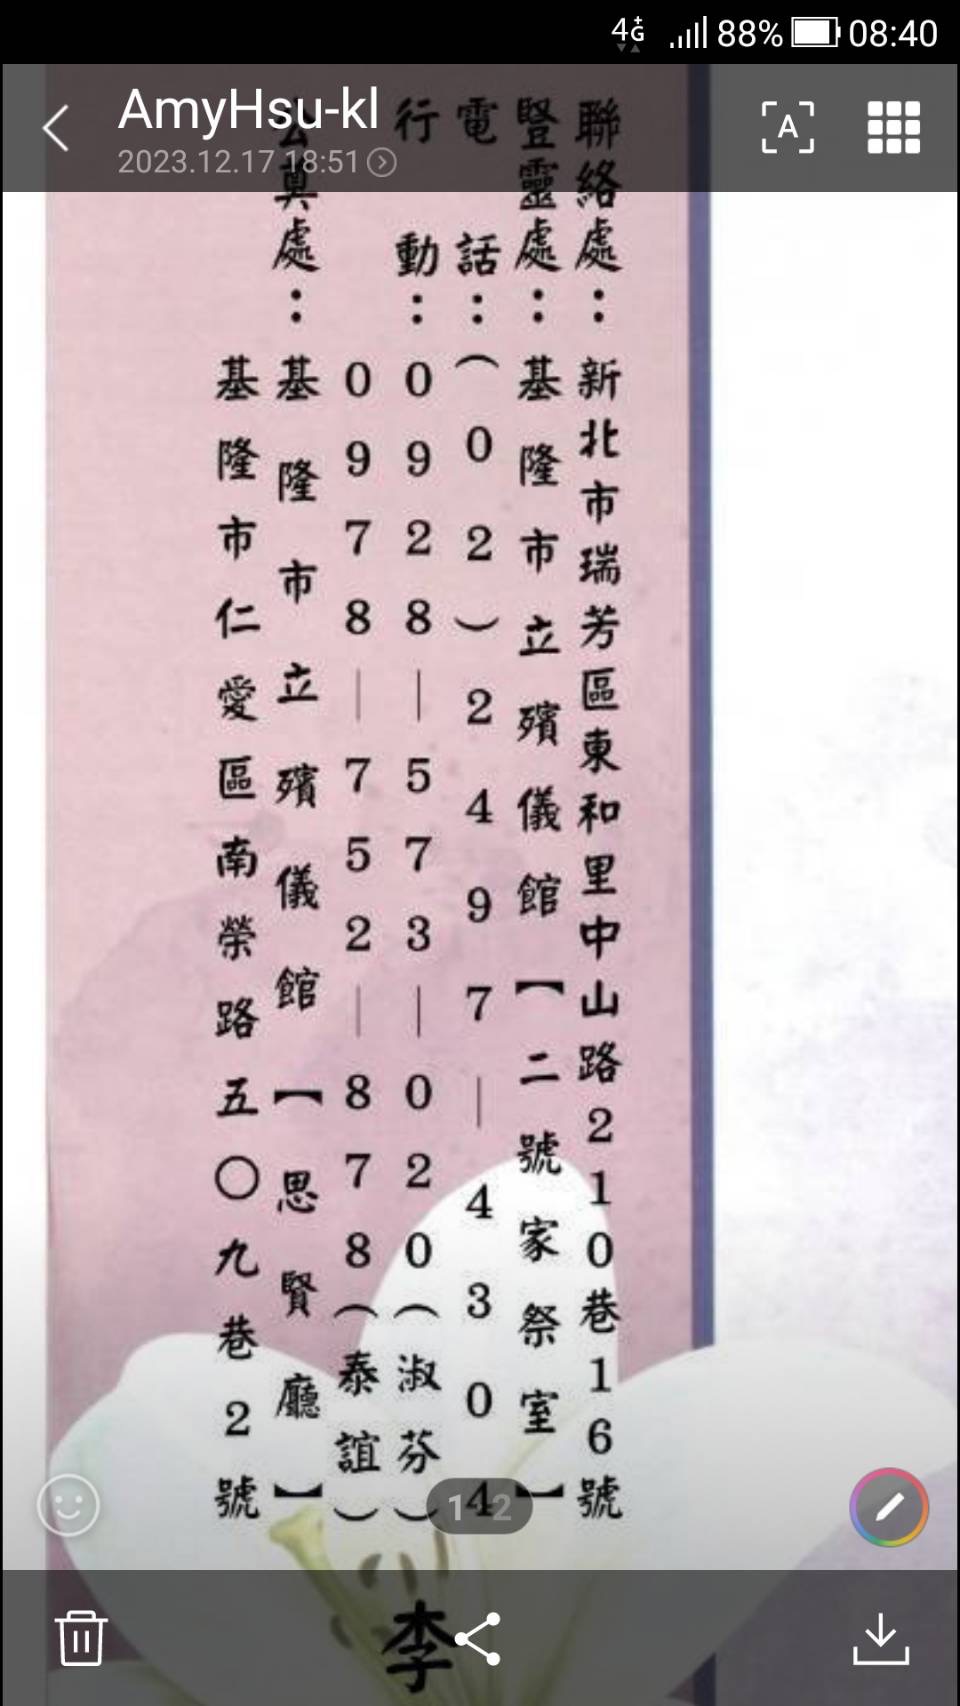 4G 88% 08:40
AmyHsu-kl
2023.12.17 18:51
聯絡處：新北市瑞芳區東和里中山路210巷16號
豎靈處：基隆市立殯儀館【二號家祭室】
電話：（02）2497－4304
行動：0928－573－020（淑芬）
0978－752－878（泰誼）
公奠處：基隆市立殯儀館【思賢廳】
基隆市仁愛區南榮路五〇九巷2號
李